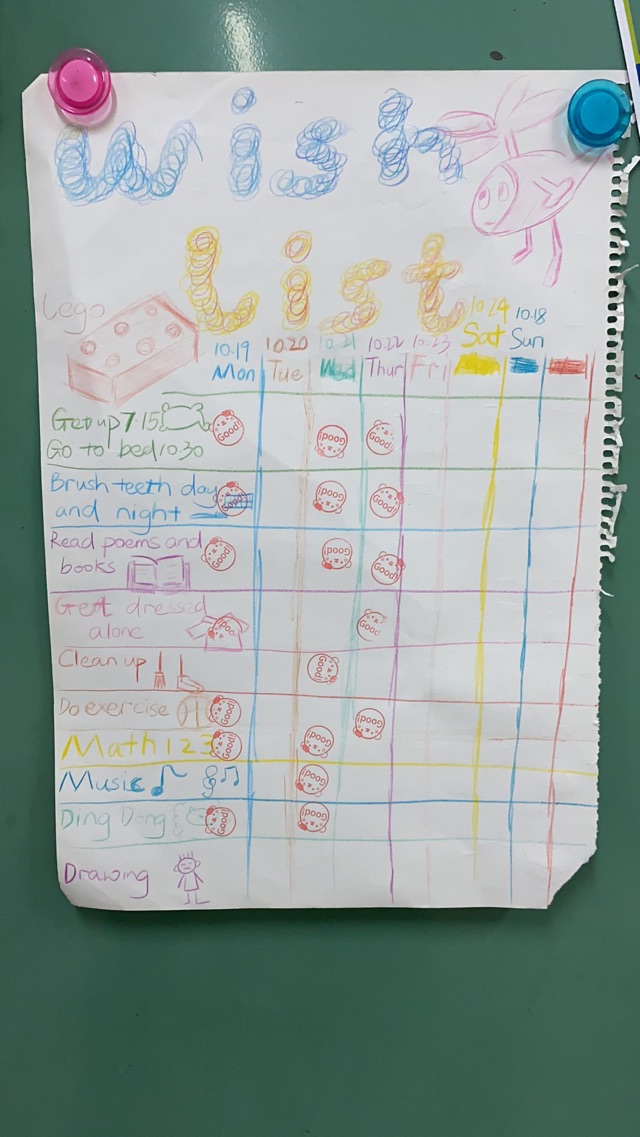 Wish
List
Lego
10.19 10.20 10.21 10.22 10.23 10.24 10.18
Mon Tue Wed Thur Fri Sat Sun
Get up 7:15
Go to bed 10:30
Good! Good! Good!
Brush teeth day
and night
Good! Good!
Read poems and
books
Good! Good! Good!
Get dressed
alone
Good! Good!
Clean up
Good!
Do exercise
Good! Good!
Math 123
Good! Good!
Music
Good!
Ding Dong
Good! Good!
Drawing